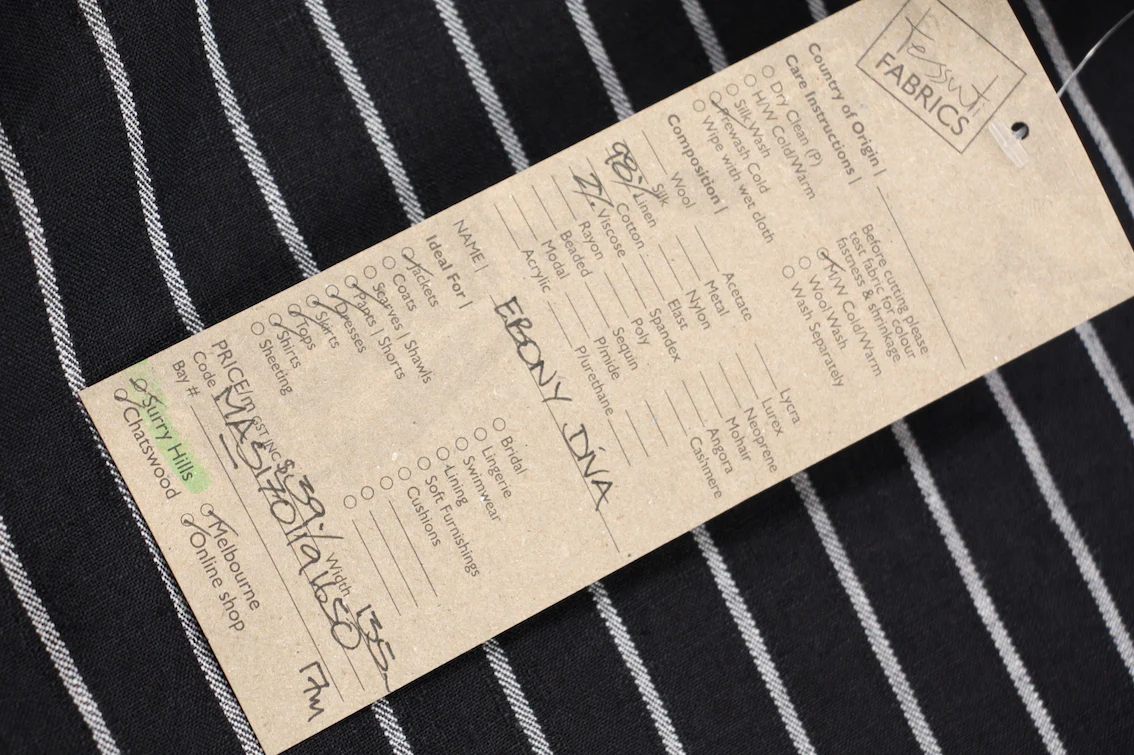 Tessuti
FABRICS
Country of Origin |
Care Instructions |
Dry Clean (P)
H/W Cold/Warm
Silk Wash
Prewash Cold
Wipe with wet cloth
Before cutting please
test fabric for colour
fastness & shrinkage
M/W Cold/Warm
Wool Wash
Wash Separately
Composition |
Wool
Silk
98% Linen
Cotton
2% Viscose
Rayon
Beaded
Modal
Acrylic
Acetate
Metal
Nylon
Elast
Spandex
Poly
Sequin
P/mide
P/urethane
Lycra
Lurex
Neoprene
Mohair
Angora
Cashmere
NAME | EBONY DIVA
Ideal For |
Jackets
Coats
Scarves | Shawls
Pants | Shorts
Dresses
Skirts
Tops
Shirts
Sheeting
Bridal
Lingerie
Swimwear
Lining
Soft Furnishings
Cushions
PRICE/m GST INC $39 Width 135
Code
Bay # 17m
Surry Hills
Chatswood
Melbourne
Online shop